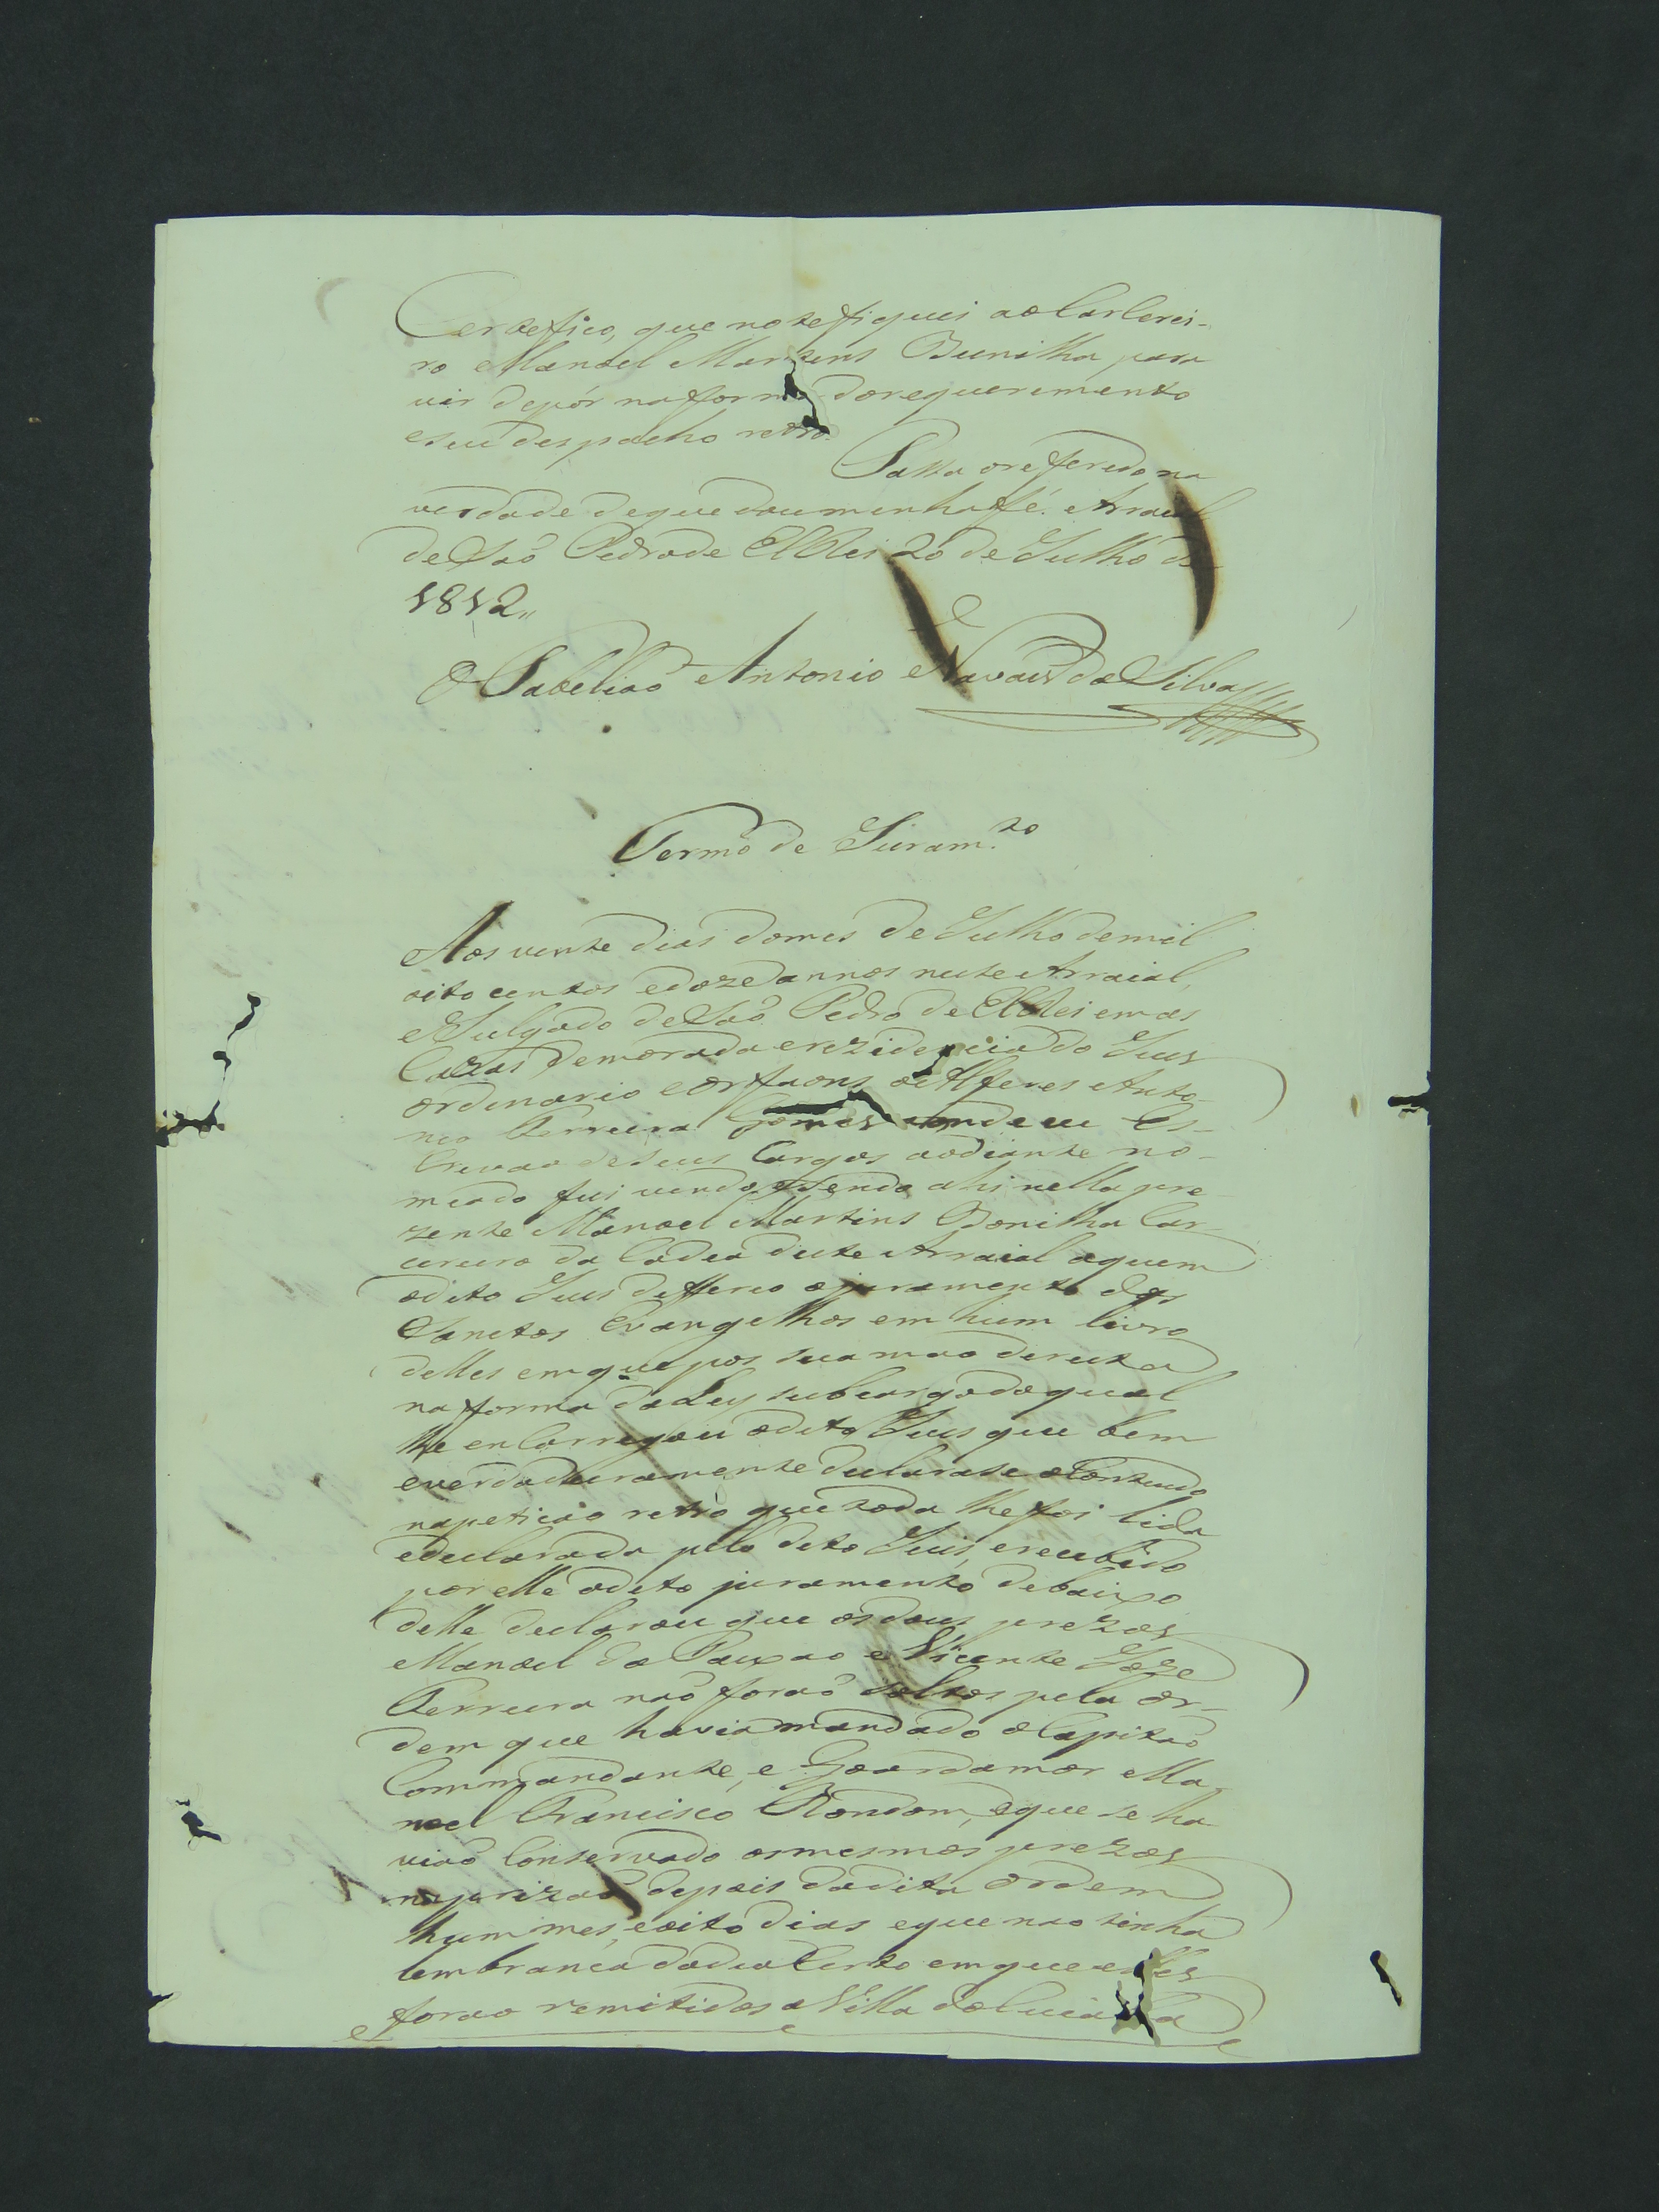 Certefico, que notefiquei ao Carcerei-
ro Manoel Martins Bunilha para
vir depór na forma do requerimento
e seu despacho retro.
Passa o referido na
verdade de que dou minha fé. Arraial
de Saõ Pedro de ElRei 20 de Julho de
1812,,
O Tabeliaõ Antonio Navais da Silva
Termo de Juram.to
Aos vinte dias do mes de Julho de mil
oito centos e doze annos neste Arraial,
e Julgado de Saõ Pedro de ElRei em as
Cazas de morada e rezidencia do Juis
ordinario e orfaons o Alferes Anto-
nio Ferreira Gomes onde eu Es-
crivao de seus Cargos ao diante no-
miado fui vindo, e sendo ahi nella pre
zente Manoel Martins Bonilha Car-
cereiro da Cadea deste Arraial a quem
o dito Juis defferio o juramento dos
Sanctos Evangelhos em hum livro
delles em que pos sua mao dereita
na forma da Ley sub cargo do qual
lhe encarregou o dito Juis que bem
e verdadeiramente declarase o Contiudo
na peticao retro que toda lhe foi lida
e declarada pelo dito Juis, e recebido
por elle o dito juramento debaixo
delle declarou que os dous prezos
Manoel da Paixao e Vicente Joze
Ferreira naõ foraõ soltos pela or-
dem que havia mandado o Capitaõ
Commandante, e Goardamor Ma-
noel Francisco Rondom, e que se ha
viaõ Conservado os mesmos prezos
na prizaõ depois da dita ordem
hum mes, e oito dias e que nao tinha
lembranca do dia Certo em que elles
forao remitidos a Villa do Cuiaba